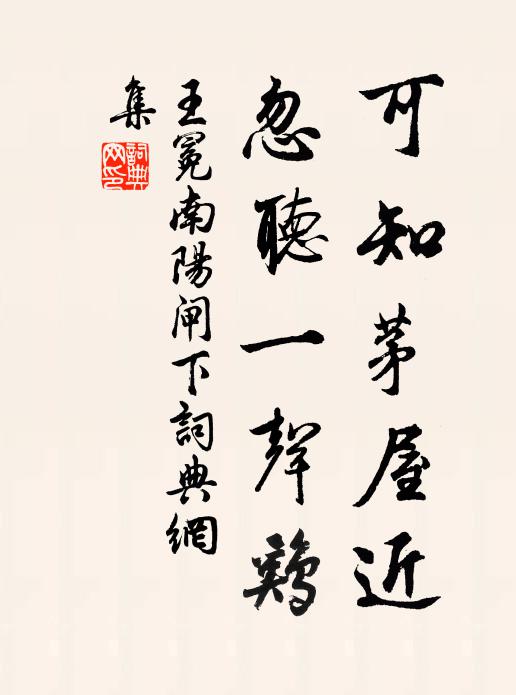 可知茅屋近
忽聽一聲鷄
王冕南陽闸下詞典網
集
詞典
网印